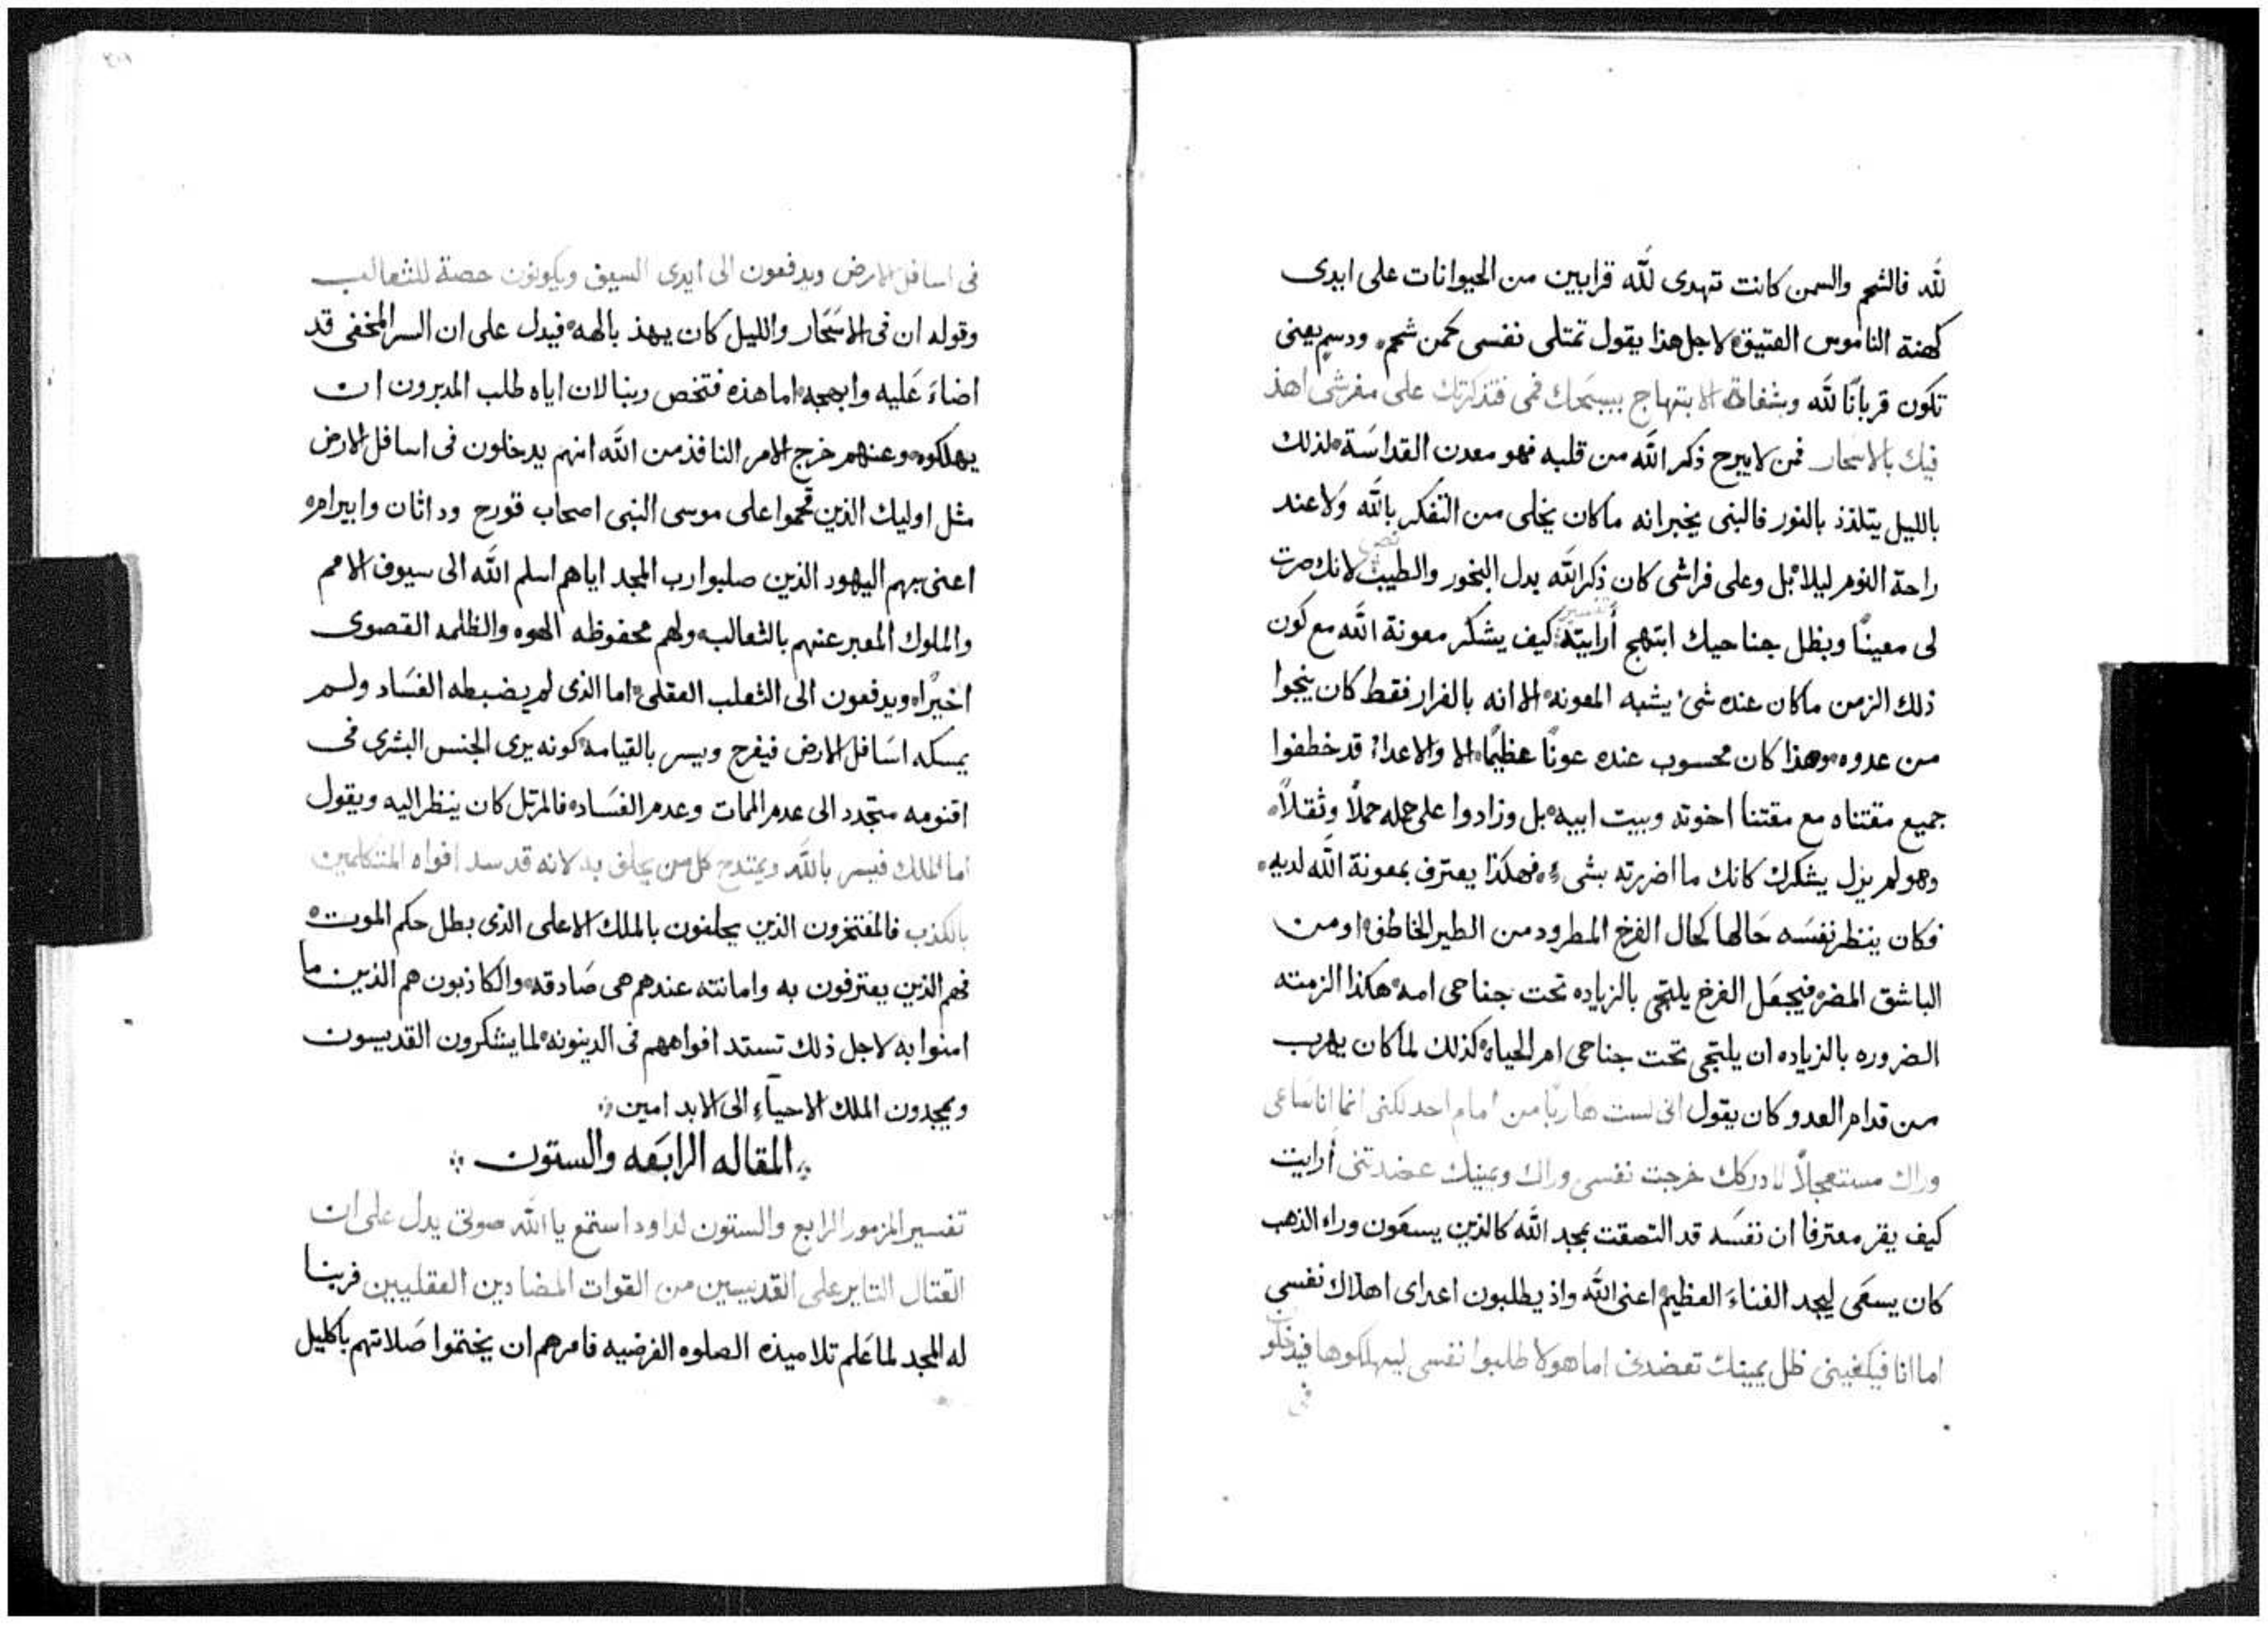 لله فالشحم والسمن كانت تهدى لله قرابين من الحيوانات على ايدى
كهنة الناموس العتيق لاجل هذا يقول تمتلى نفسى كمن شحم ودسم يعنى
تكون قربانًا لله وبشفاة الابتهاج يسبحك فمى فتذكرتك على مفرشى اهذ
فيك بالاسحار فمن لا يبرح ذكر الله من قلبه فهو معدن القداسة لذلك
بالليل يتلذذ بالنور فالنبى يخبر انه ما كان يخلى من التفكر بالله ولا عند
راحة النوم ليلا بل وعلى فراشى كان ذكر الله بدل البخور والطيب نص لانك صرت
لى معينًا وبظل جناحيك ابتهج تفسير أرايته كيف يشكر معونة الله مع كون
ذلك الزمن ما كان عنده شئ يشبه المعونه الا انه بالفرار فقط كان ينجوا
من عدوه وهذا كان محسوب عنده عونًا عظيمًا الا والاعداء قد خطفوا
جميع مقتناه مع مقتنا اخوته وبيت ابيه بل وزادوا على حمله حملاً وثقلاً
وهو لم يزل يشكرك كانك ما اضررته بشىء فهكذا يعترف بمعونة الله لديه
فكان ينظر نفسه حالها كحال الفرخ المطرود من الطير الخاطف او من
الباشق المضر فيجعل الفرخ يلتجى بالزياده تحت جناحى امه هكذا الزمته
الضروره بالزياده ان يلتجى تحت جناحى ام الحياه كذلك لما كان يهرب
من قدام العدو كان يقول انى لست هاربًا من امام احد لكنى انما انا ساعى
وراك مستعجلاً لادركك خرجت نفسى وراك ويمينك عضدتنى أرايت
كيف يقر معترفا ان نفسه قد التصقت بمجد الله كالذين يسعون وراه الذهب
كان يسعى ليجد الغناء العظيم اعنى الله واذ يطلبون اعداى اهلاك نفسى
اما انا فيكفينى ظل يمينك تعضدنى اما هولا طلبوا نفسى ليهلكوها فيدخلون
فى
فى اسافل الارض ويدفعون الى ايدى السيف ويكونون حصة للثعالب
وقوله ان فى الاسحار والليل كان يهذ بالهه فيدل على ان السر المخفى قد
اضاء عليه وابهجه اما هذه فتخص ربنا لان اياه طلب المدبرون ان
يهلكوه وعنهم خرج الامر النافذ من الله انهم يدخلون فى اسافل الارض
مثل اوليك الذين قحموا على موسى النبى اصحاب قورح وداثان وابيرام
اعنى بهم اليهود الذين صلبوا رب المجد اياهم اسلم الله الى سيوف الامم
والملوك المعبر عنهم بالثعالب ولهم محفوظه الهوه والظلمه القصوى
اخيرًا ويدفعون الى الثعلب العقلى اما الذى لم يضبطه الفساد ولم
يمسكه اسافل الارض فيفرح ويسر بالقيامه كونه يرى الجنس البشرى فى
اقنومه متجدد الى عدم الممات وعدم الفساد فالمرتل كان ينظر اليه ويقول
اما الملك فيسر بالله ويمتدح كل من يحلف به لانه قد سد افواه المتكلمين
بالكذب فالمفتخرون الذين يحلفون بالملك الاعلى الذى بطل حكم الموت
فهم الذين يعترفون به وامانته عندهم هى صادقه والكاذبون هم الذين ما
امنوا به لاجل ذلك تستد افواههم فى الدينونه لما يشكرون القديسون
ويمجدون الملك الاحياء الى الابد امين
المقاله الرابعه والستون
تفسير المزمور الرابع والستون لداود استمع يا الله صوتى يدل على ان
القتال الثاير على القديسين من القوات المضادين العقليين فربنا
له المجد لما علم تلاميذه الصلوه الفرضيه فامرهم ان يختموا صلاتهم باكليل